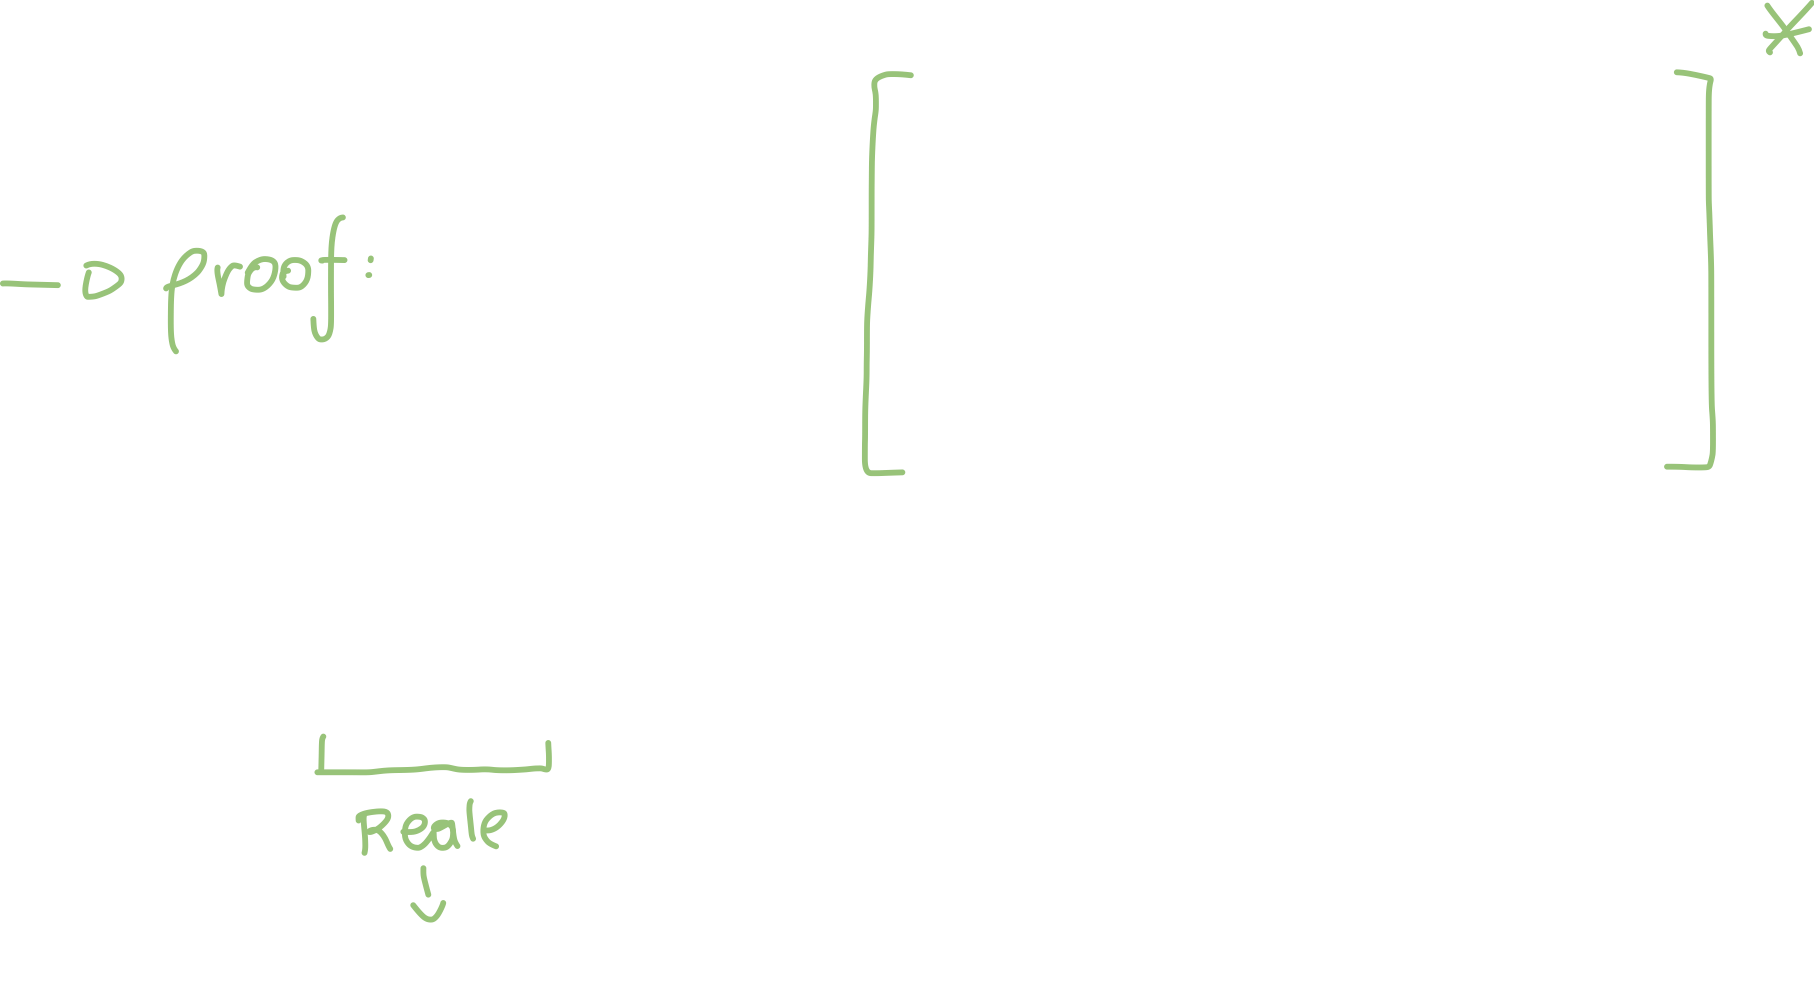 *
[ ]
→ proof:
Reale
↓